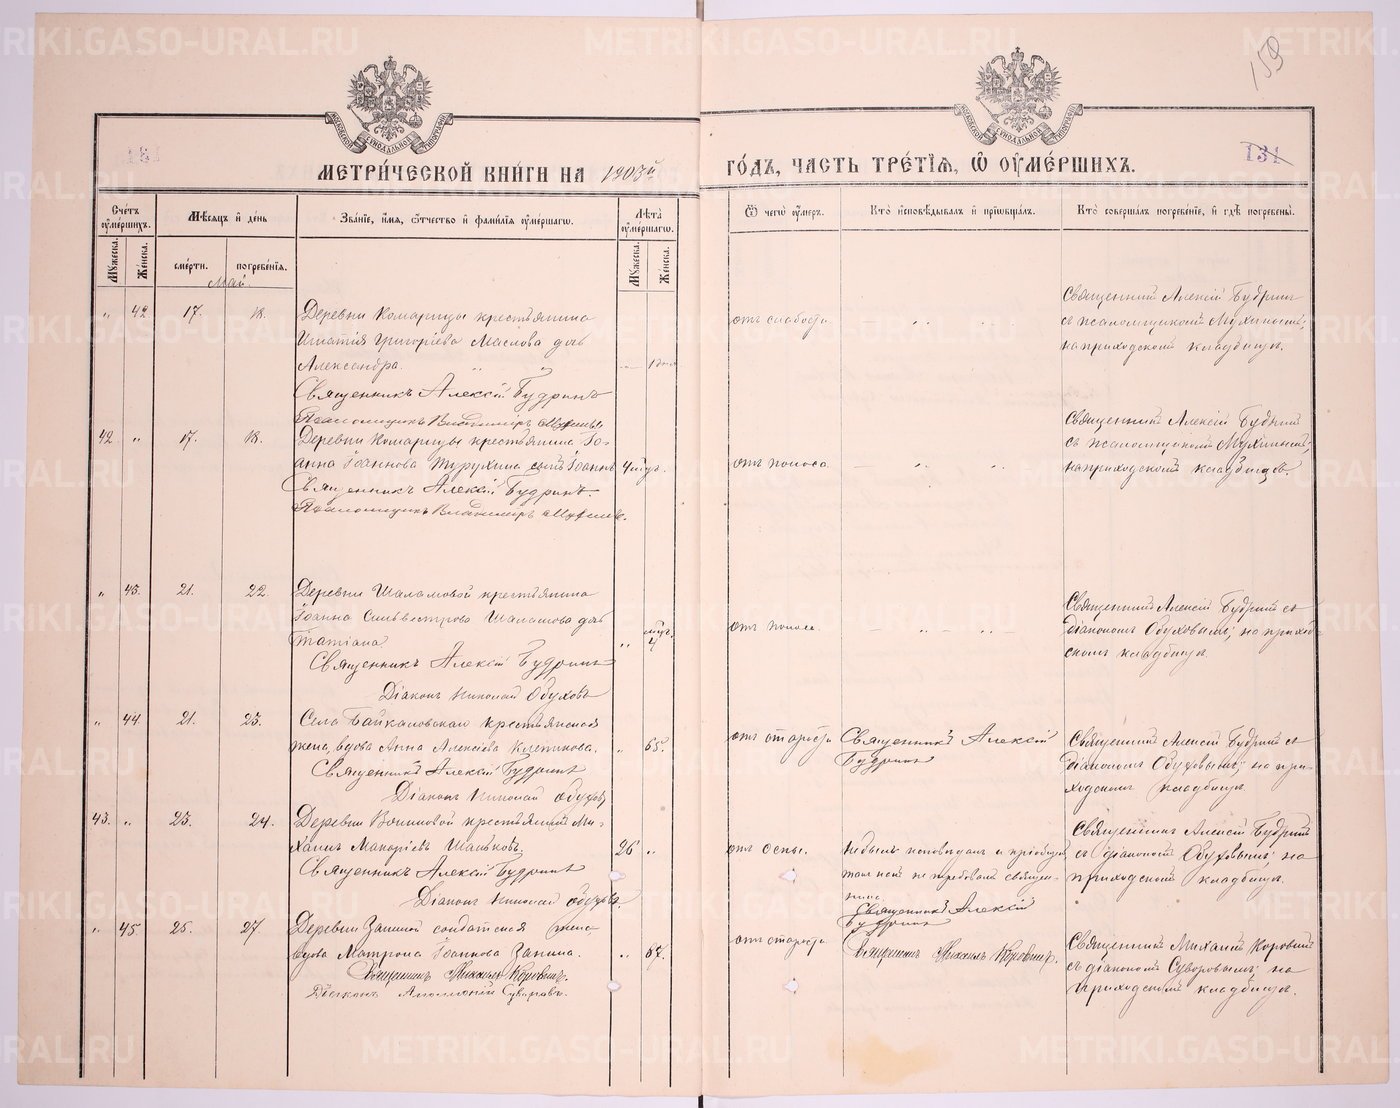 159
131
МЕТРИ́ЧЕСКОЙ КНИ́ГИ НА 1903й
ГО́ДЪ, ЧАСТЬ ТРЕ́ТІѦ, Ѿ ОУМЕ́РШИХЪ.
Счетъ оумершихъ.
Мѣсяцъ и день
Званіе, имя, отчество и фамилія оумершаго.
Лѣта оумершаго.
Мужеска.
Женска.
смерти.
погребенія.
Мужеска.
Женска.
Май.
Ѿ чего оумеръ.
Кто исповѣдывалъ и пріобщалъ.
Кто совершалъ погребеніе, и гдѣ погребены.
" 42 17. 18. Деревни Комарицы крестьянина
Игнатія Григоріева Маслова дочь
Александра. 1 дня
Священникъ Алексій Будринъ
Псаломщикъ Владиміръ Мухинъ
отъ слабости
Священник Алексій Будрин
съ псаломщикомъ Мухинымъ,
на приходском кладбищѣ.
42 " 17. 18. Деревни Комарицы крестьянина Іо-
анна Іоаннова Турухина сынъ Іоаннъ
Священникъ Алексій Будринъ.
Псаломщикъ Владиміръ Мухинъ.
отъ поноса
Священник Алексій Будрин
съ псаломщикомъ Мухинымъ,
на приходском кладбищѣ.
" 43. 21. 22. Деревни Шаламовой крестьянина
Іоанна Сильвестрова Шаламова дочь
Татіана
Священникъ Алексій Будринъ
Діаконъ Николай Обуховъ
отъ поноса.
Священник Алексій Будрин съ
діаконом Обуховым, на приход-
ском кладбищѣ.
" 44. 21. 23. Села Байкаловскаго крестьянская
жена, вдова Анна Алексіева Клепикова. " 65.
Священникъ Алексій Будринъ
Діаконъ Николай Обуховъ
отъ старости
Священникъ Алексій
Будринъ
Священник Алексій Будрин съ
діаконом Обуховым, на при-
ходском кладбищѣ.
43. " 23. 24. Деревни крестьянин Ми-
хаилъ Макаріевъ 26 "
Священникъ Алексій Будринъ
Діаконъ Николай Обуховъ.
отъ оспы.
Священникъ Алексій
Будринъ
Священник Алексій Будрин
съ діаконом Обуховым, на
приходском кладбищѣ.
" 45. 25. 27 Деревни Заниной солдатская жена
вдова Матрона Іоаннова Занина. " 67.
Священник Михаил Коровин.
Діаконъ Суворовъ.
отъ старости
Священник Михаил Коровин.
Священник Михаил Коровин
съ діаконом Суворовым, на
приходском кладбищѣ.